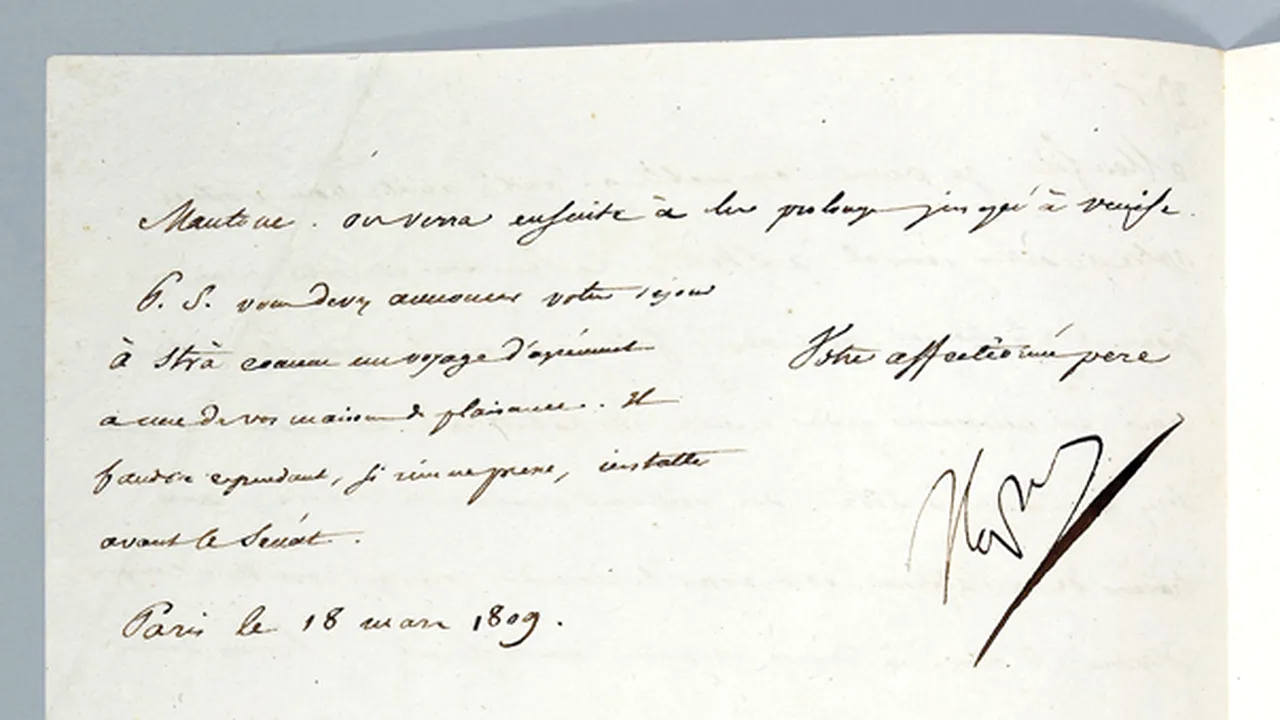 Mantoue. on verra ensuite à les prolonger jusqu'à venise.
P. S. vous devez annoncer votre sejour
à Strà comme un voyage d'agrément
a une de vos maisons de plaisance. Il
faudra cependant, si rien ne presse, installer
avant le Sénat.
Votre affectionné pere
Nap
Paris le 18 mars 1809.